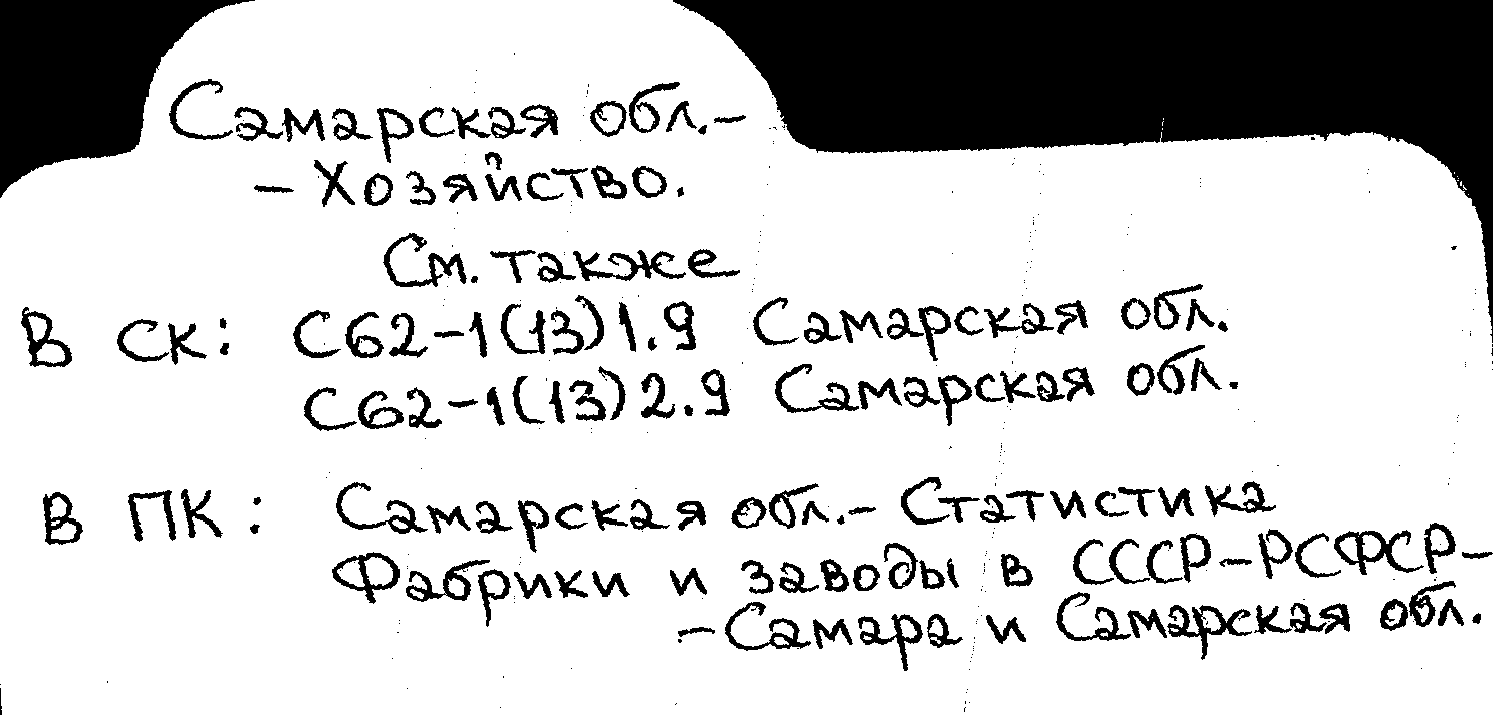 Самарская обл.-
- Хозяйство.
См. также
В СК: С62-1(13)1.9 Самарская обл.
С62-1(13)2.9 Самарская обл.
В ПК: Самарская обл.- Статистика
Фабрики и заводы в СССР-РСФСР-
- Самара и Самарская обл.